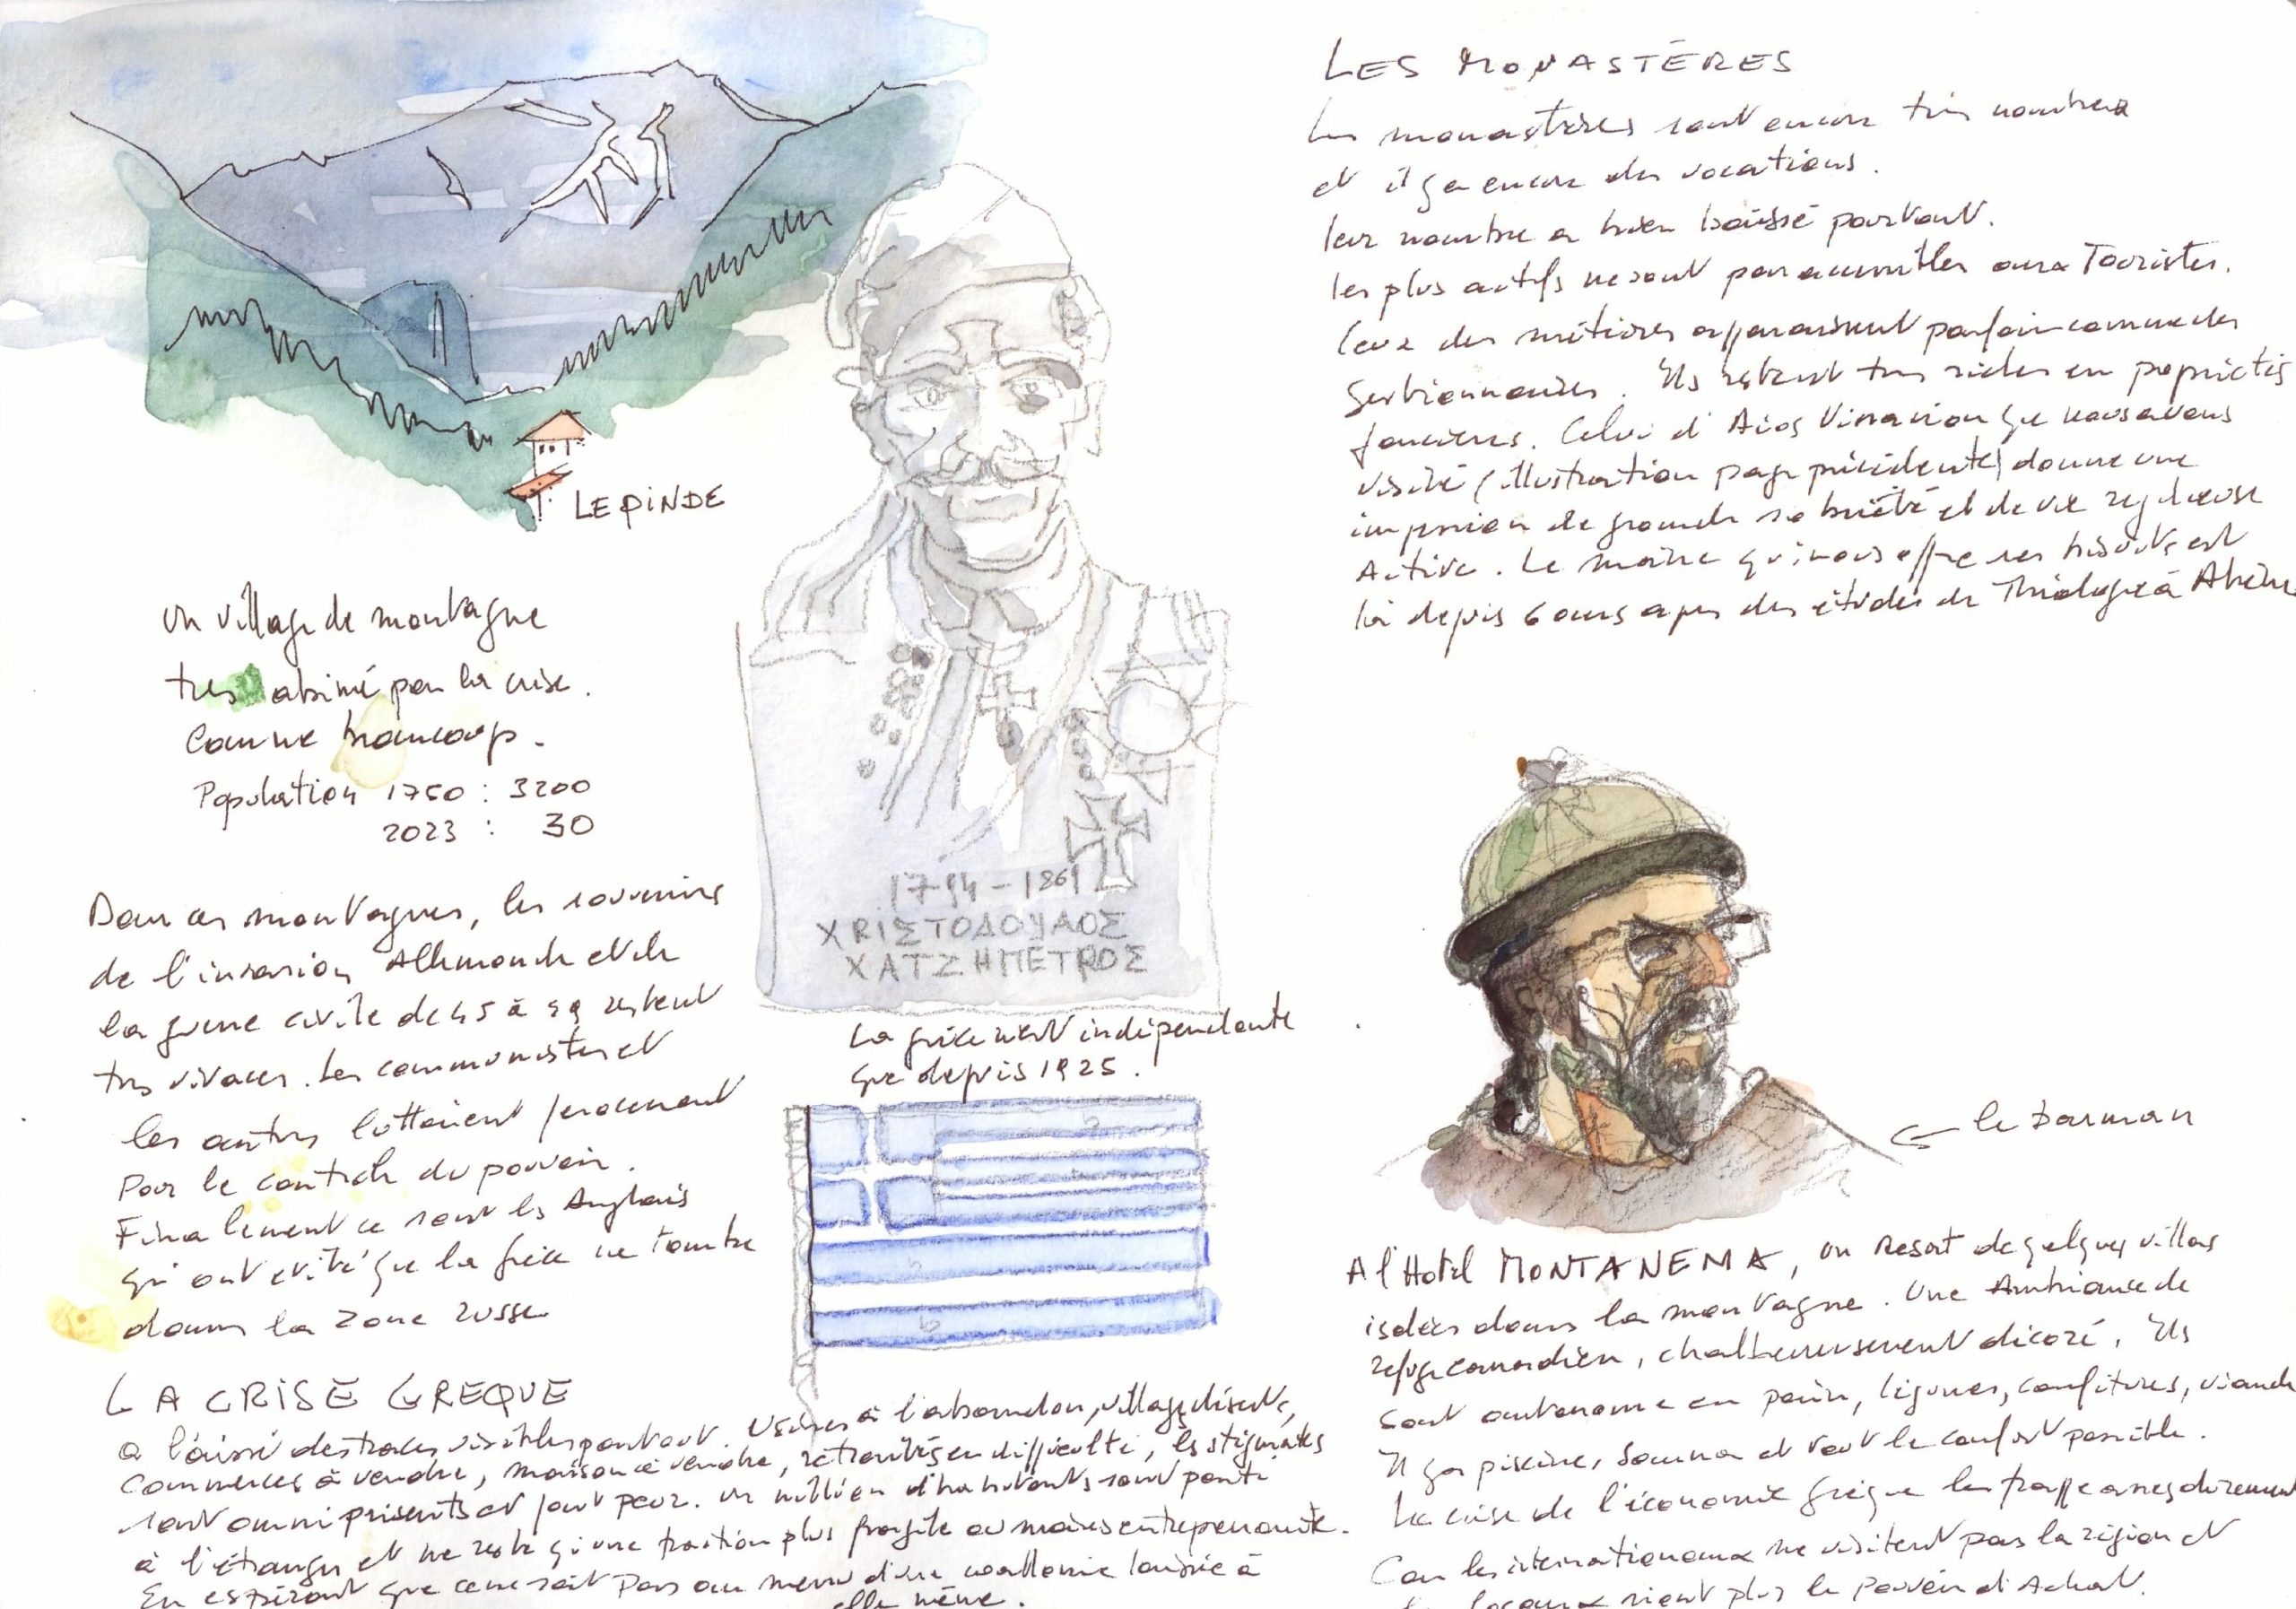 LE PINDE
Un village de montagne
tres abimé par la crise.
Comme beaucoup.
Population 1750 : 3200
2023 : 30
Dans ces montagnes, les souvenirs
de l'invasion Allemande et de
la guerre civile de 45 à 49 restent
tres vivaces. Les communistes et
les autres luttaient
Pour le controle du pouvoir.
Finalement ce sont les Anglais
qui ont évité que la Grèce ne tombe
dans la zone russe
1794 - 1861
ΧRΙΣΤΟΔΟΥΛΟΣ
ΧΑΤΖΗΠΕΤRΟΣ
La Grèce n'est indépendante
que depuis 1925.
LA CRISE GREQUE
a laissé des traces visibles partout. Usines à l'abandon, villages déserts,
commerces à vendre, maisons à vendre, retraités en difficulté, les stigmates
sont omniprésents et font peur. Un million d'habitants sont partis
à l'étranger et ne reste qu'une fraction plus fragile ou moins entreprenante.
En espérant que ce ne soit pas au menu d'une wallonie laissée à
elle même.
LES MONASTÈRES
Les monastères sont encore très nombreux
et il y a encore des vocations.
leur nombre a bien baissé pourtant.
les plus actifs ne sont pas accessibles aux Touristes.
Ceux des météores apparaissent parfois comme des
. Ils restent tres riches en propriétés
foncières. Celui d'Aios Vissarion que nous avons
visité (illustration page précédente) donne une
impression de grande sobriété et de vie religieuse
Active. Le moine qui nous offre ses biscuits est
là depuis 6 ans apres des études de Théologie à Athènes
le barman
A l'Hotel MONTANEMA, un Resort de quelques villas
isolées dans la montagne. Une Ambiance de
refuge canadien, chaleureusement décoré. Ils
sont autonome en pain, légumes, confitures, viande
Il y a piscine, Sauna et tout le confort possible.
La crise de l'économie grèque les frappe assez durement
Car les internationaux ne visitent pas la région et
les locaux n'ont plus le pouvoir d'Achat.